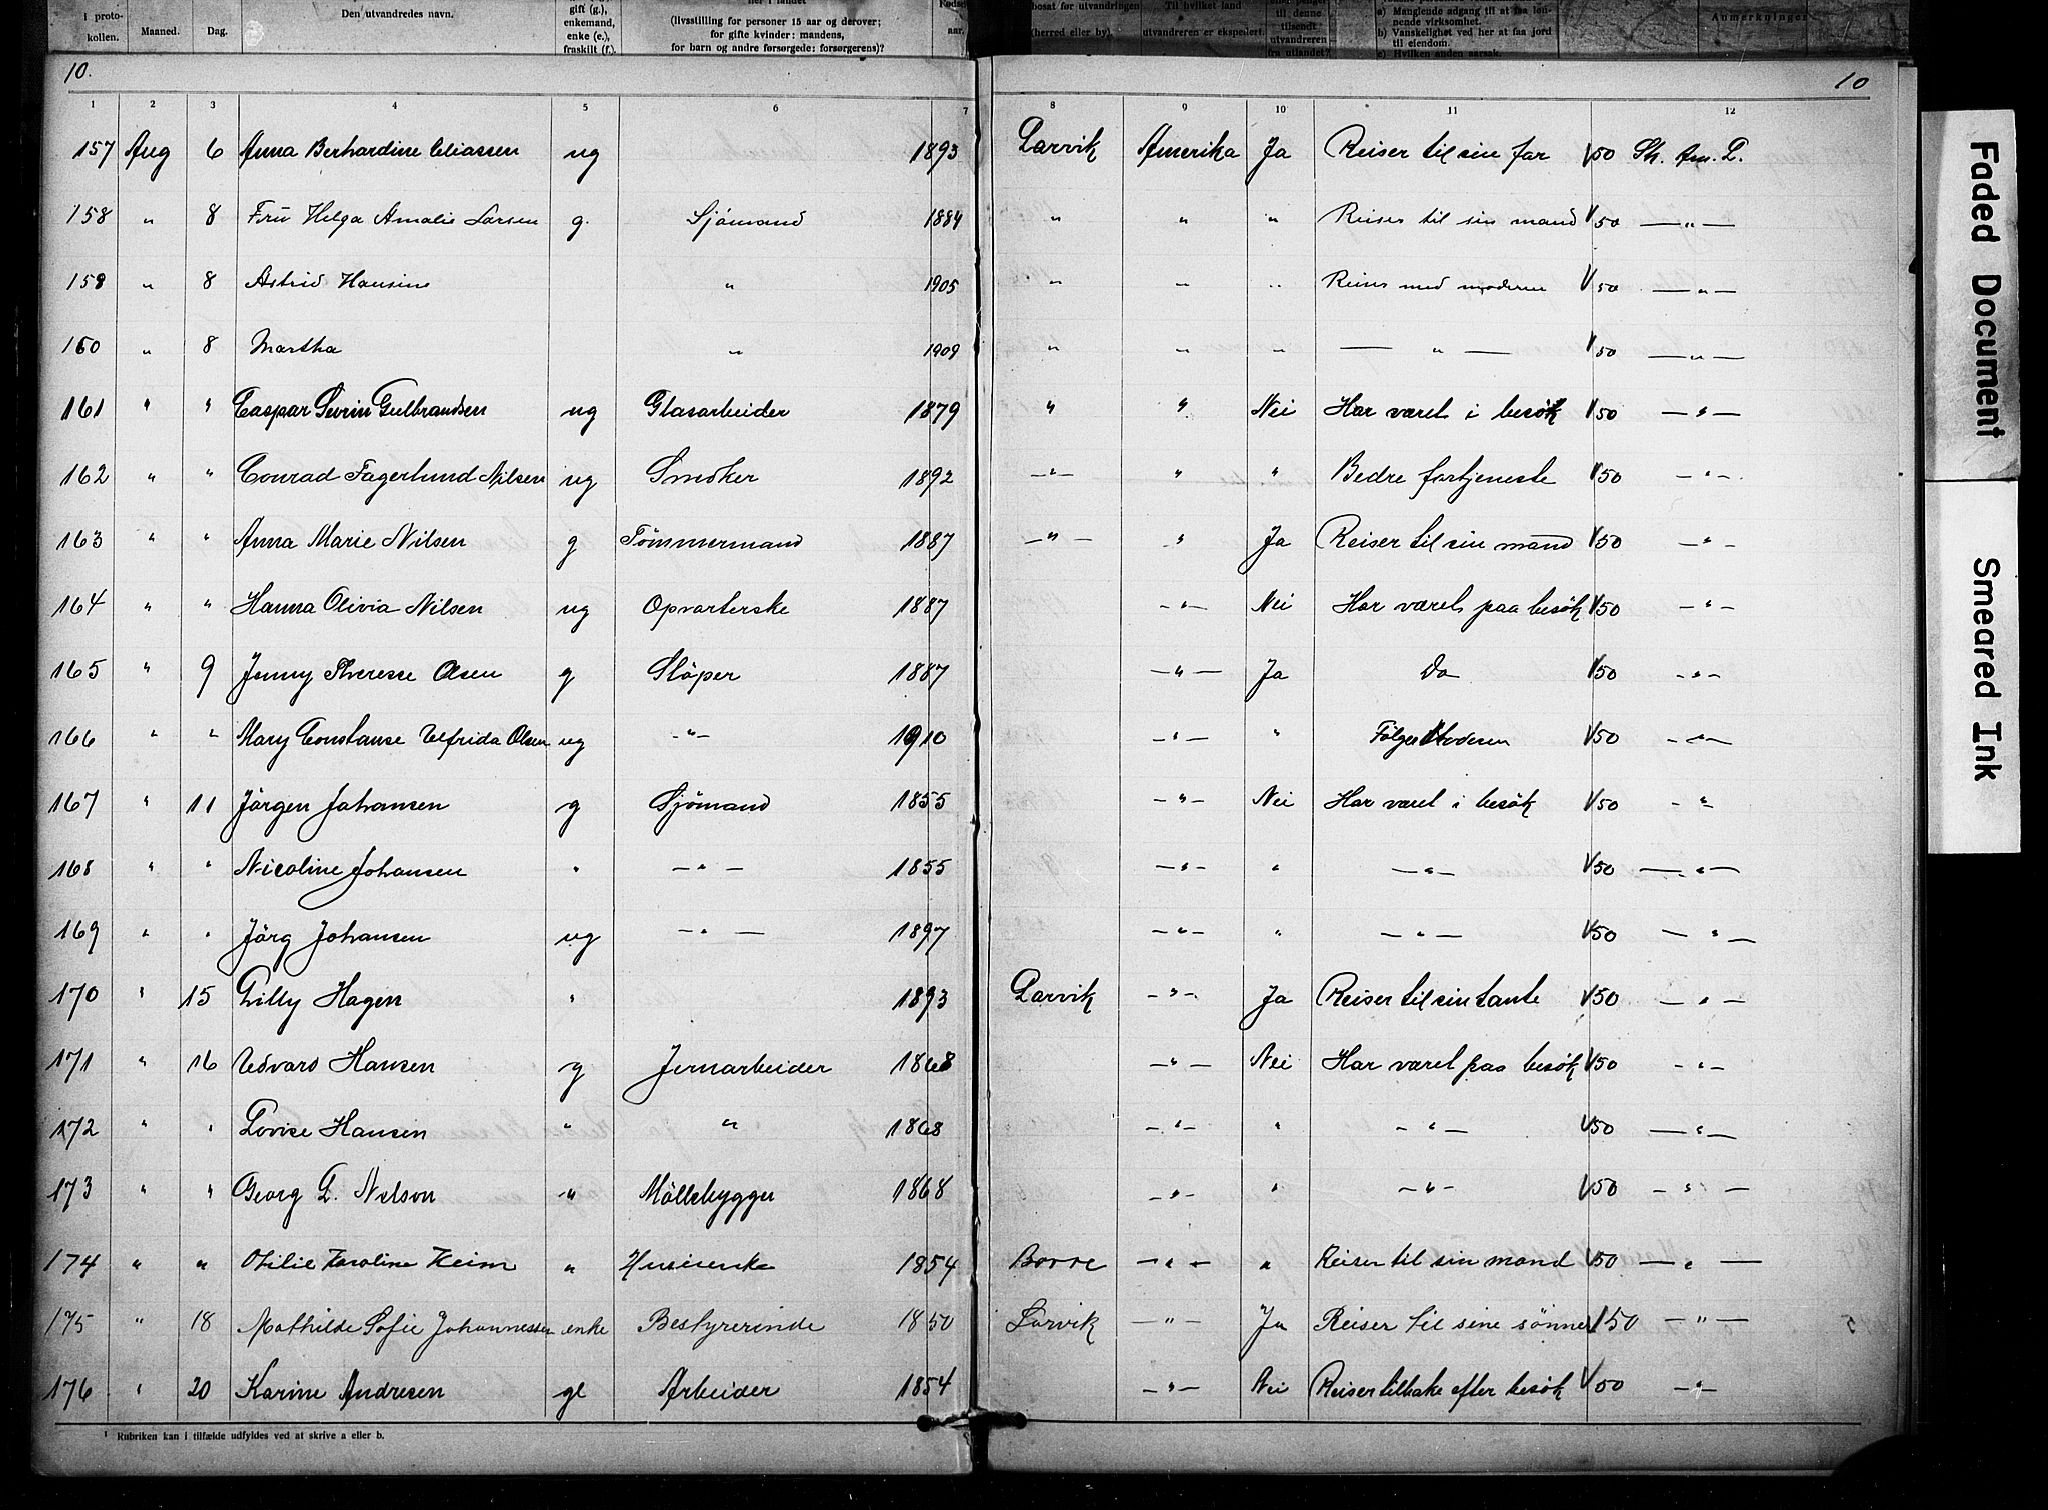 I proto-
kollen. Maaned. Dag. Den utvandredes navn. gift (g.),
enkemand,
enke (e.),
fraskilt (f.) her i landet
(livsstilling for personer 15 aar og derover;
for gifte kvinder: mandens,
for barn og andre forsørgede: forsørgerens)? Fødse
aar. bosat før utvandringen
(herred eller by). Til hvilket land
utvandreren er ekspedert. til denne
tilsendt
utvandreren
fra utlandet? a) Manglende adgang til at faa løn-
nende virksomhet.
b) Vanskelighet ved her at faa jord
til eiendom.
c) Hvilken anden aarsak. Anmerkninger
10. 10
1 2 3 4 5 6 7 8 9 10 11 12
157 Aug 6 Anna Berhardine Eliassen ug 1893 Larvik Amerika Ja Reiser til sin far 1/50 Sk. Am. L.
158 " 8 Fru Helga Amalie Larsen g. Sjömand 1884 " " " Reiser til sin mand 1/50 — " —
159 " 8 Astrid Hansine " 1905 " " " Reiser med moderen 1/50 — " —
160 " 8 Martha " 1909 " " " — " — 1/50 — " —
161 " " Caspar Sevrin Gulbrandsen ug Glasarbeider 1879 " " Nei Har været i besök 1/50 — " —
162 " " Conrad Fagerlund Nilsen ug Snedker 1892 — " — " " Bedre fortjeneste 1/50 — " —
163 " " Anna Marie Nilsen g Tömmermand 1887 — " — " Ja Reiser til sin mand 1/50 — " —
164 " " Hanna Olivia Nilsen ug Opvarterske 1887 — " — Nei Har været paa besök 1/50 — " —
165 " 9 Jenny Therese Olsen g Stöper 1887 — " — Ja Do 1/50 — " —
166 " " Mary Constanse Elfrida Olsen ug — " — 1910 — " — " Følger Moderen 1/50 — " —
167 " 11 Jörgen Johansen g Sjömand 1855 — " — Nei Har været i besök 1/50 — " —
168 " " Nicoline Johansen " — " — 1855 — " — " — " — 1/50 — " —
169 " " Jörg Johansen ug — " — 1897 — " — " — " — 1/50 — " —
170 " 15 Lilly Hagen " 1893 Larvik — " — Ja Reiser til sin tante 1/50 — " —
171 " 16 Edvard Hansen g Jernarbeider 1868 — " — Nei Har været paa besök 1/50 — " —
172 " " Lovise Hansen " " 1868 — " — " — " — 1/50 — " —
173 " " Georg L. Nelson " Möllebygger 1868 — " — " — " — 1/50 — " —
174 " " Otilie Karoline Heim " 1854 Borre — " — " Reiser til sin mand 1/50 — " —
175 " 18 Mathilde Sofie Johannessen enke Bestyrerinde 1850 Larvik — " — Ja Reiser til sine sönner 1/50 — " —
176 " 20 Karine Andresen gl Arbeider 1854 — " — Nei Reiser tilbake efter besök 1/50 — " —
¹ Rubriken kan i tilfælde udfyldes ved at skrive a eller b.
Faded Document
Smeared Ink